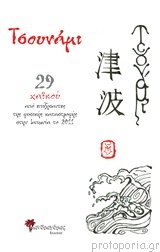 Τσουνάμι
29
χαϊκού
από επιζήσαντες
της φυσικής καταστροφής
στην Ιαπωνία το 2011
津
波
ΤΣΟΥΝΑΜΙ
protoporia.gr